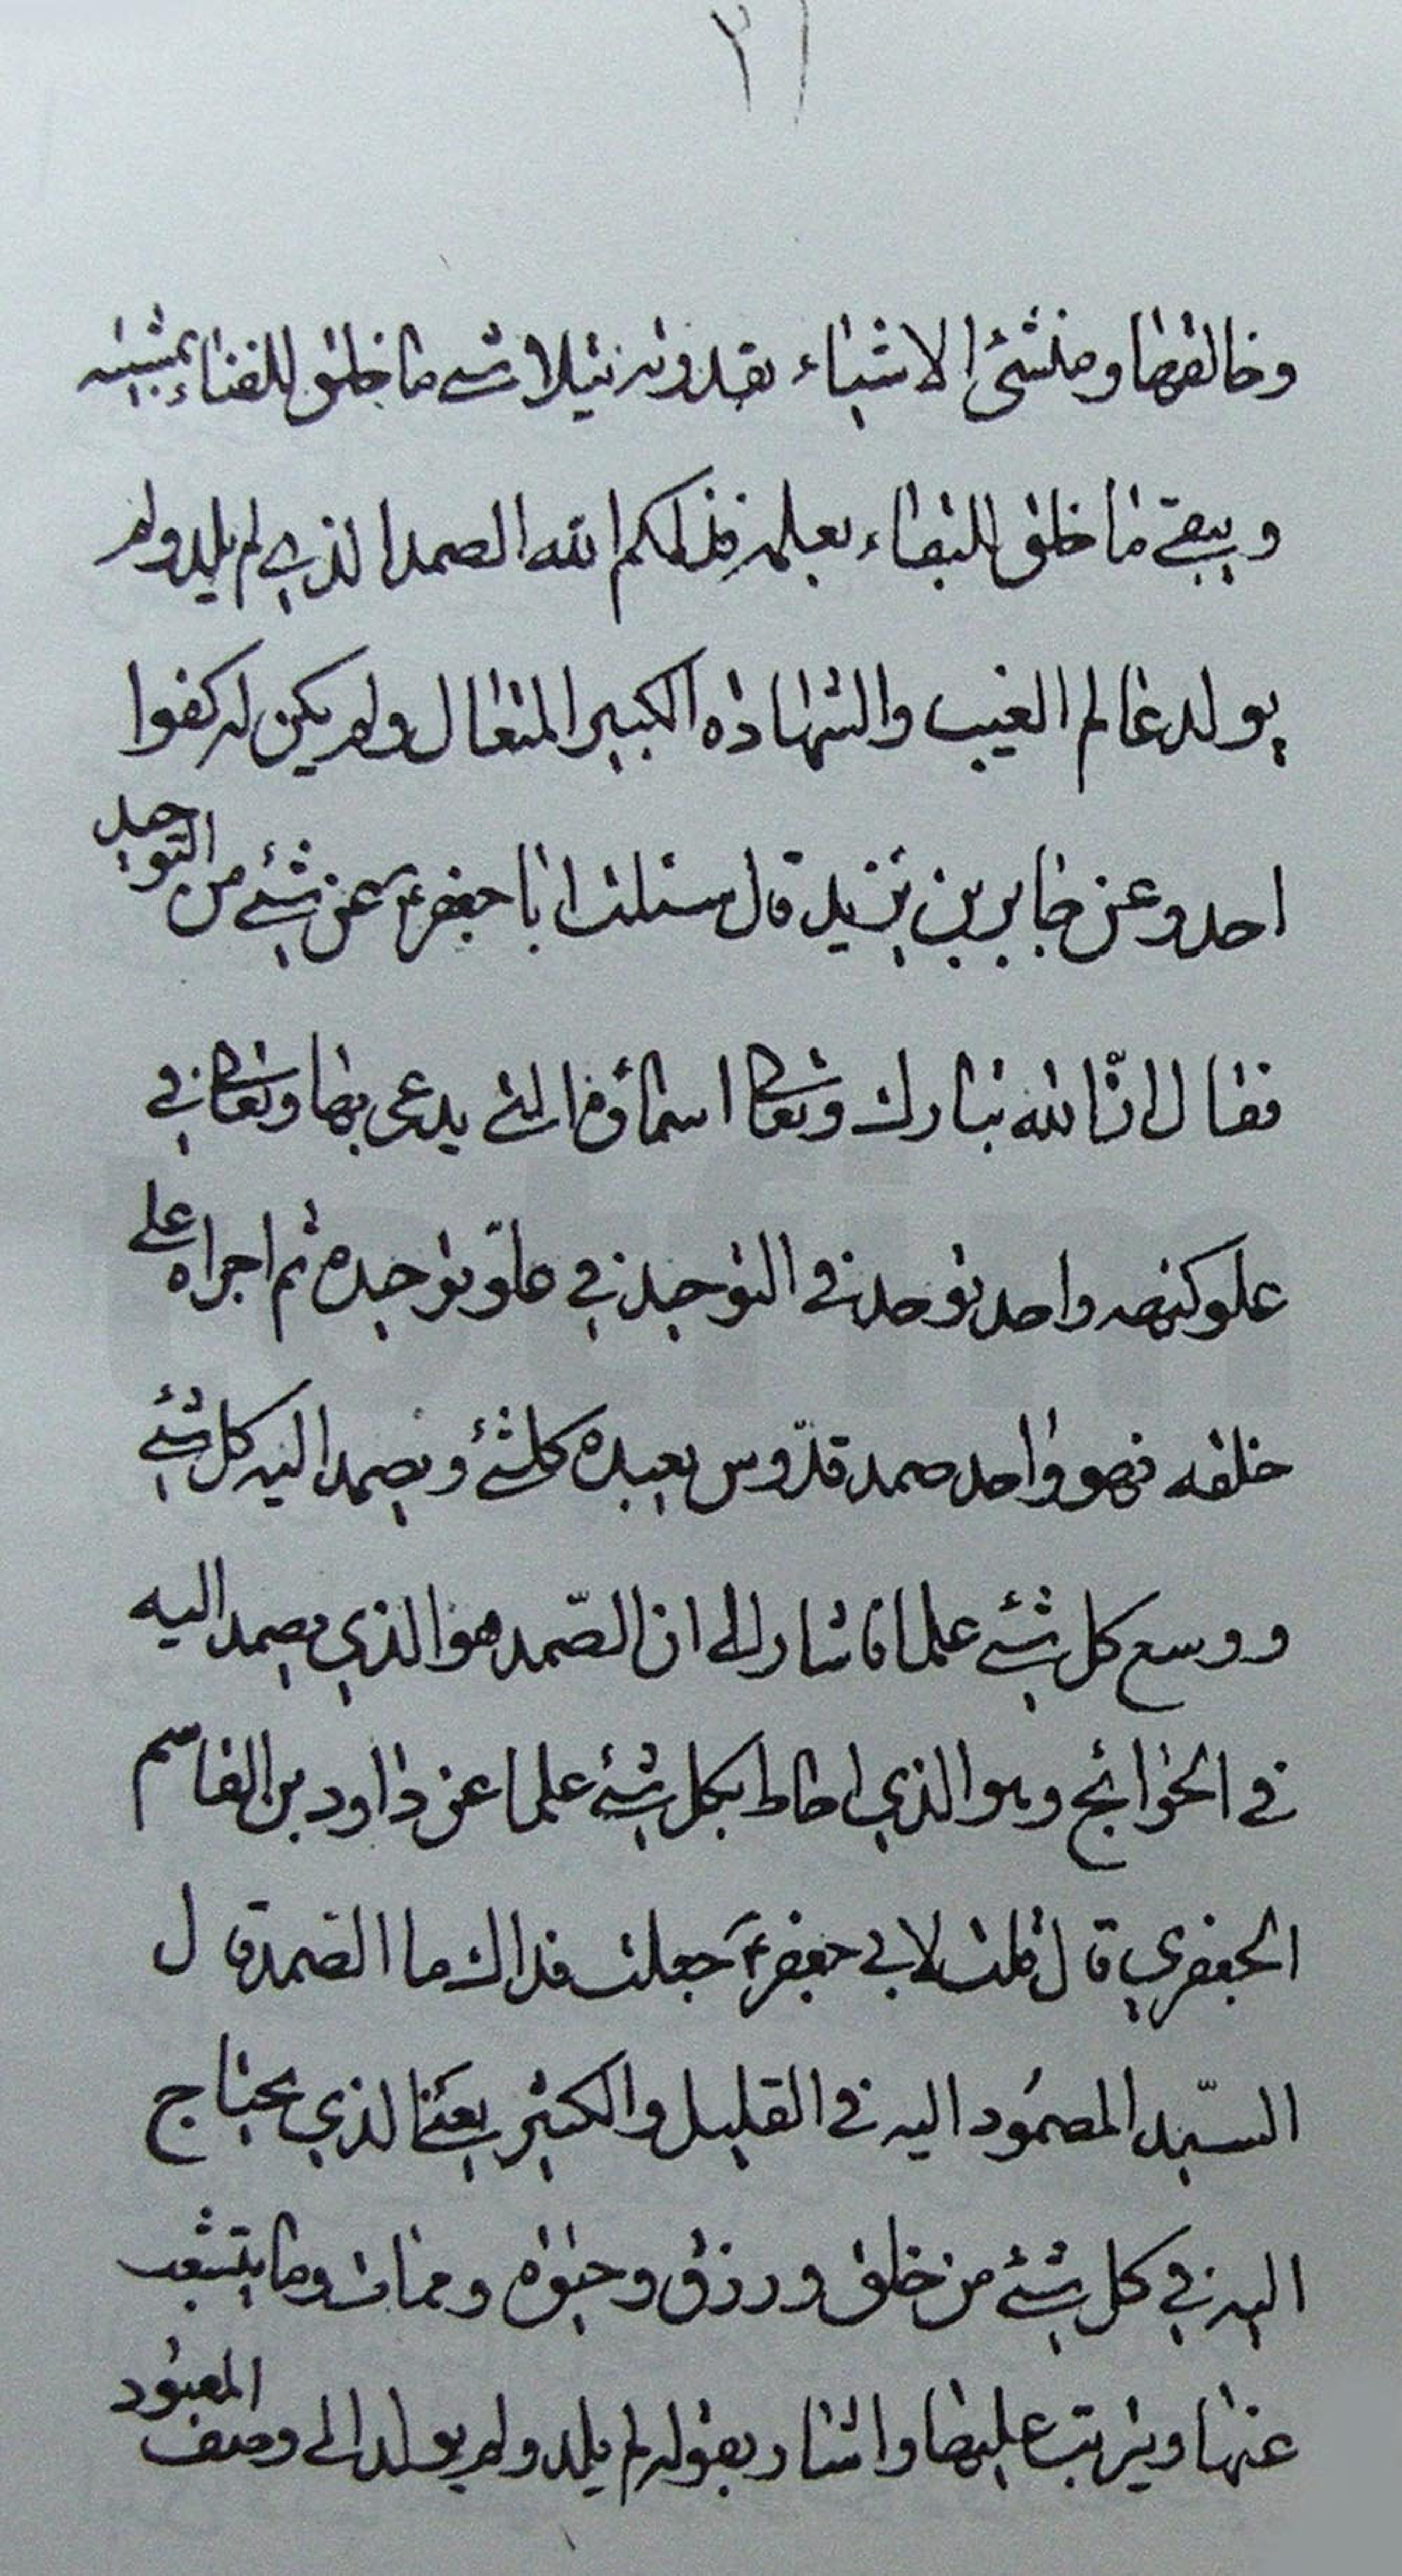 ٢١
وخالقها ومنشئ الاشياء بقدرته يتلاشى ما خلق للفناء بمشيته
ويبقى ما خلق للبقاء بعلمه فذلكم الله الصمد الذي لم يلد ولم
يولد عالم الغيب والشهادة الكبير المتعال ولم يكن له كفوا
احد وعن جابر بن يزيد قال سئلت ابا جعفر ع عن شئ من التوحيد
فقال ان الله تبارك وتعالى اسماؤه التي يدعى بها وتعالى في
علو كنهه واحد توحد في التوحيد في علو توحيده ثم اجراه على
خلقه فهو واحد صمد قدّوس يعبده كلشئ ويصمد اليه كل شئ
ووسع كل شئ علما فاشار الى ان الصّمد هو الذي يصمد اليه
في الحوائج وهو الذي احاط بكل شئ علما عن داود بن القاسم
الجعفري قال قلت لابي جعفر ع جعلت فداك ما الصمد قال
السيّد المصمُود اليه في القليل والكثير يعني الذي يحتاج
اليه في كل شئ من خلق ورزق وحيوة وممات وما يتشعب
عنها ويترتب عليها واشار بقوله لم يلد ولم يولد الى وصف المعبود